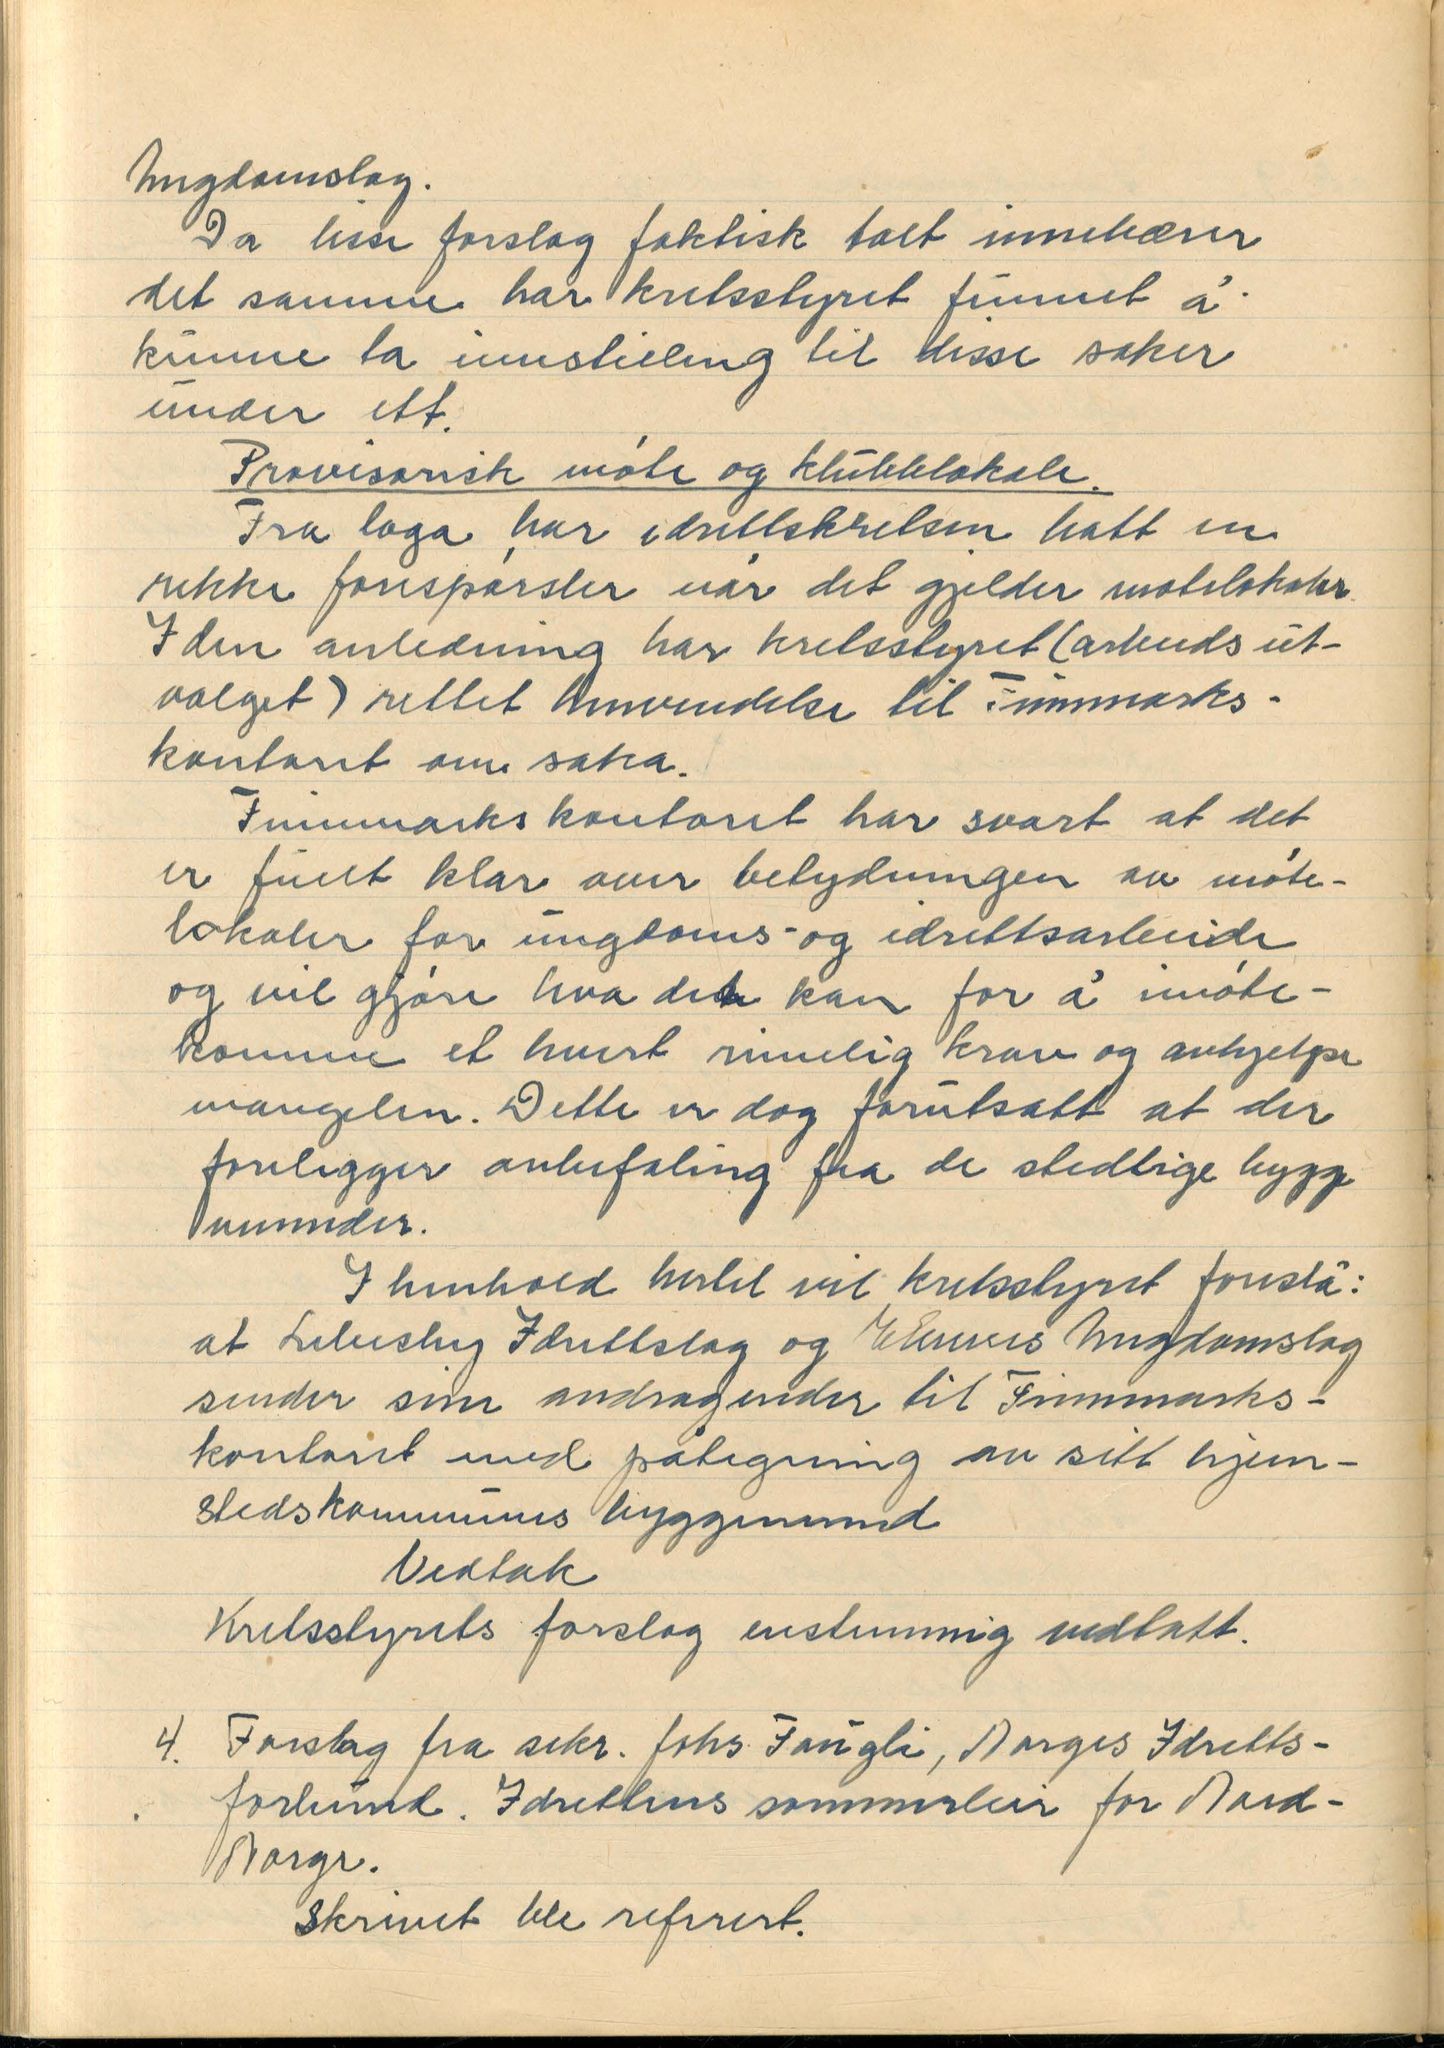 Ungdomslag.
Da disse forslag faktisk talt innebærer
det samme har kretsstyret funnet å
kunne ta innstilling til disse saker
under ett.
Provisorisk møte og klubblokale.
Fra laga har idrettskretsen hatt en
rekke forespørsler når det gjelder møtelokaler.
I den anledning har kretsstyret (arbeids ut-
valget) rettet henvendelse til Finnmarks-
kontoret om saka.
Finnmarkskontoret har svart at det
er fullt klar over betydningen av møte-
lokaler for ungdoms- og idrettsarbeide
og vil gjøre hva det kan for å imøte-
komme et hvert rimelig krav og avhjelpe
mangelen. Dette er dog forutsatt at der
foreligger anbefaling fra de stedlige bygg
nemnder.
I henhold hertil vil kretsstyret foreslå:
at Lebesby Idrettslag og Ungdomslag
sender sine andragender til Finnmarks-
kontoret med påtegning av sitt hjem-
stedskommunes byggenemnd
Vedtak
Kretsstyrets forslag enstemmig vedtatt.
4. Forslag fra sekr. Johs Fangli, Norges Idretts-
forbund. Idrettens sommerleir for Nord-
Norge.
Skrivet ble referert.